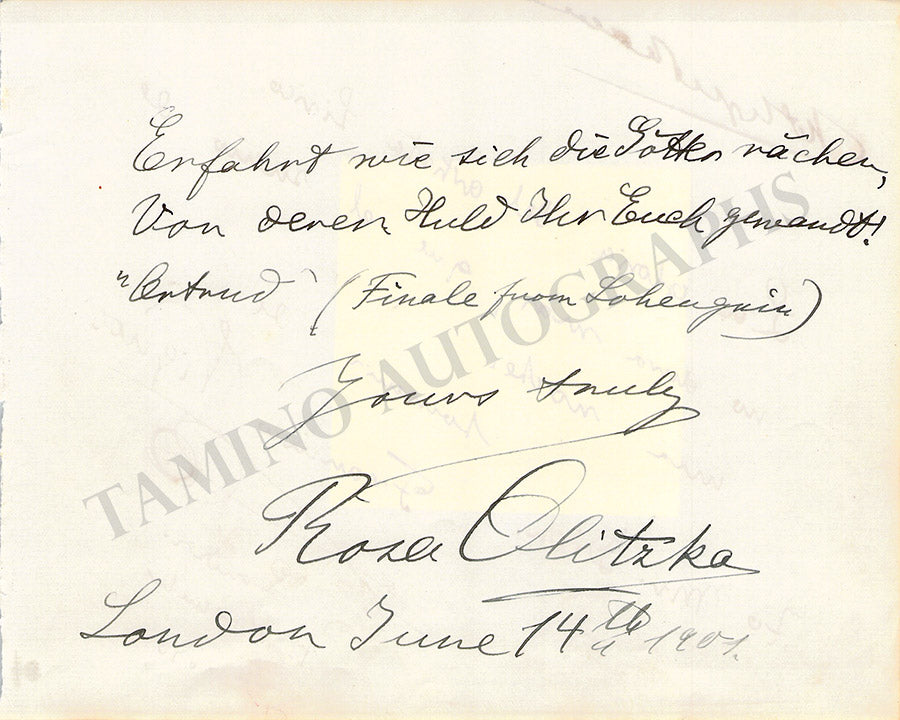 Erfahrt wie sich die Götter rächen,
Von deren Huld Ihr Euch gewandt!
"Ortrud" (Finale from Lohengrin)
Yours truly
Rosa Olitzka
London June 14th 1901.
TAMINO AUTOGRAPHS